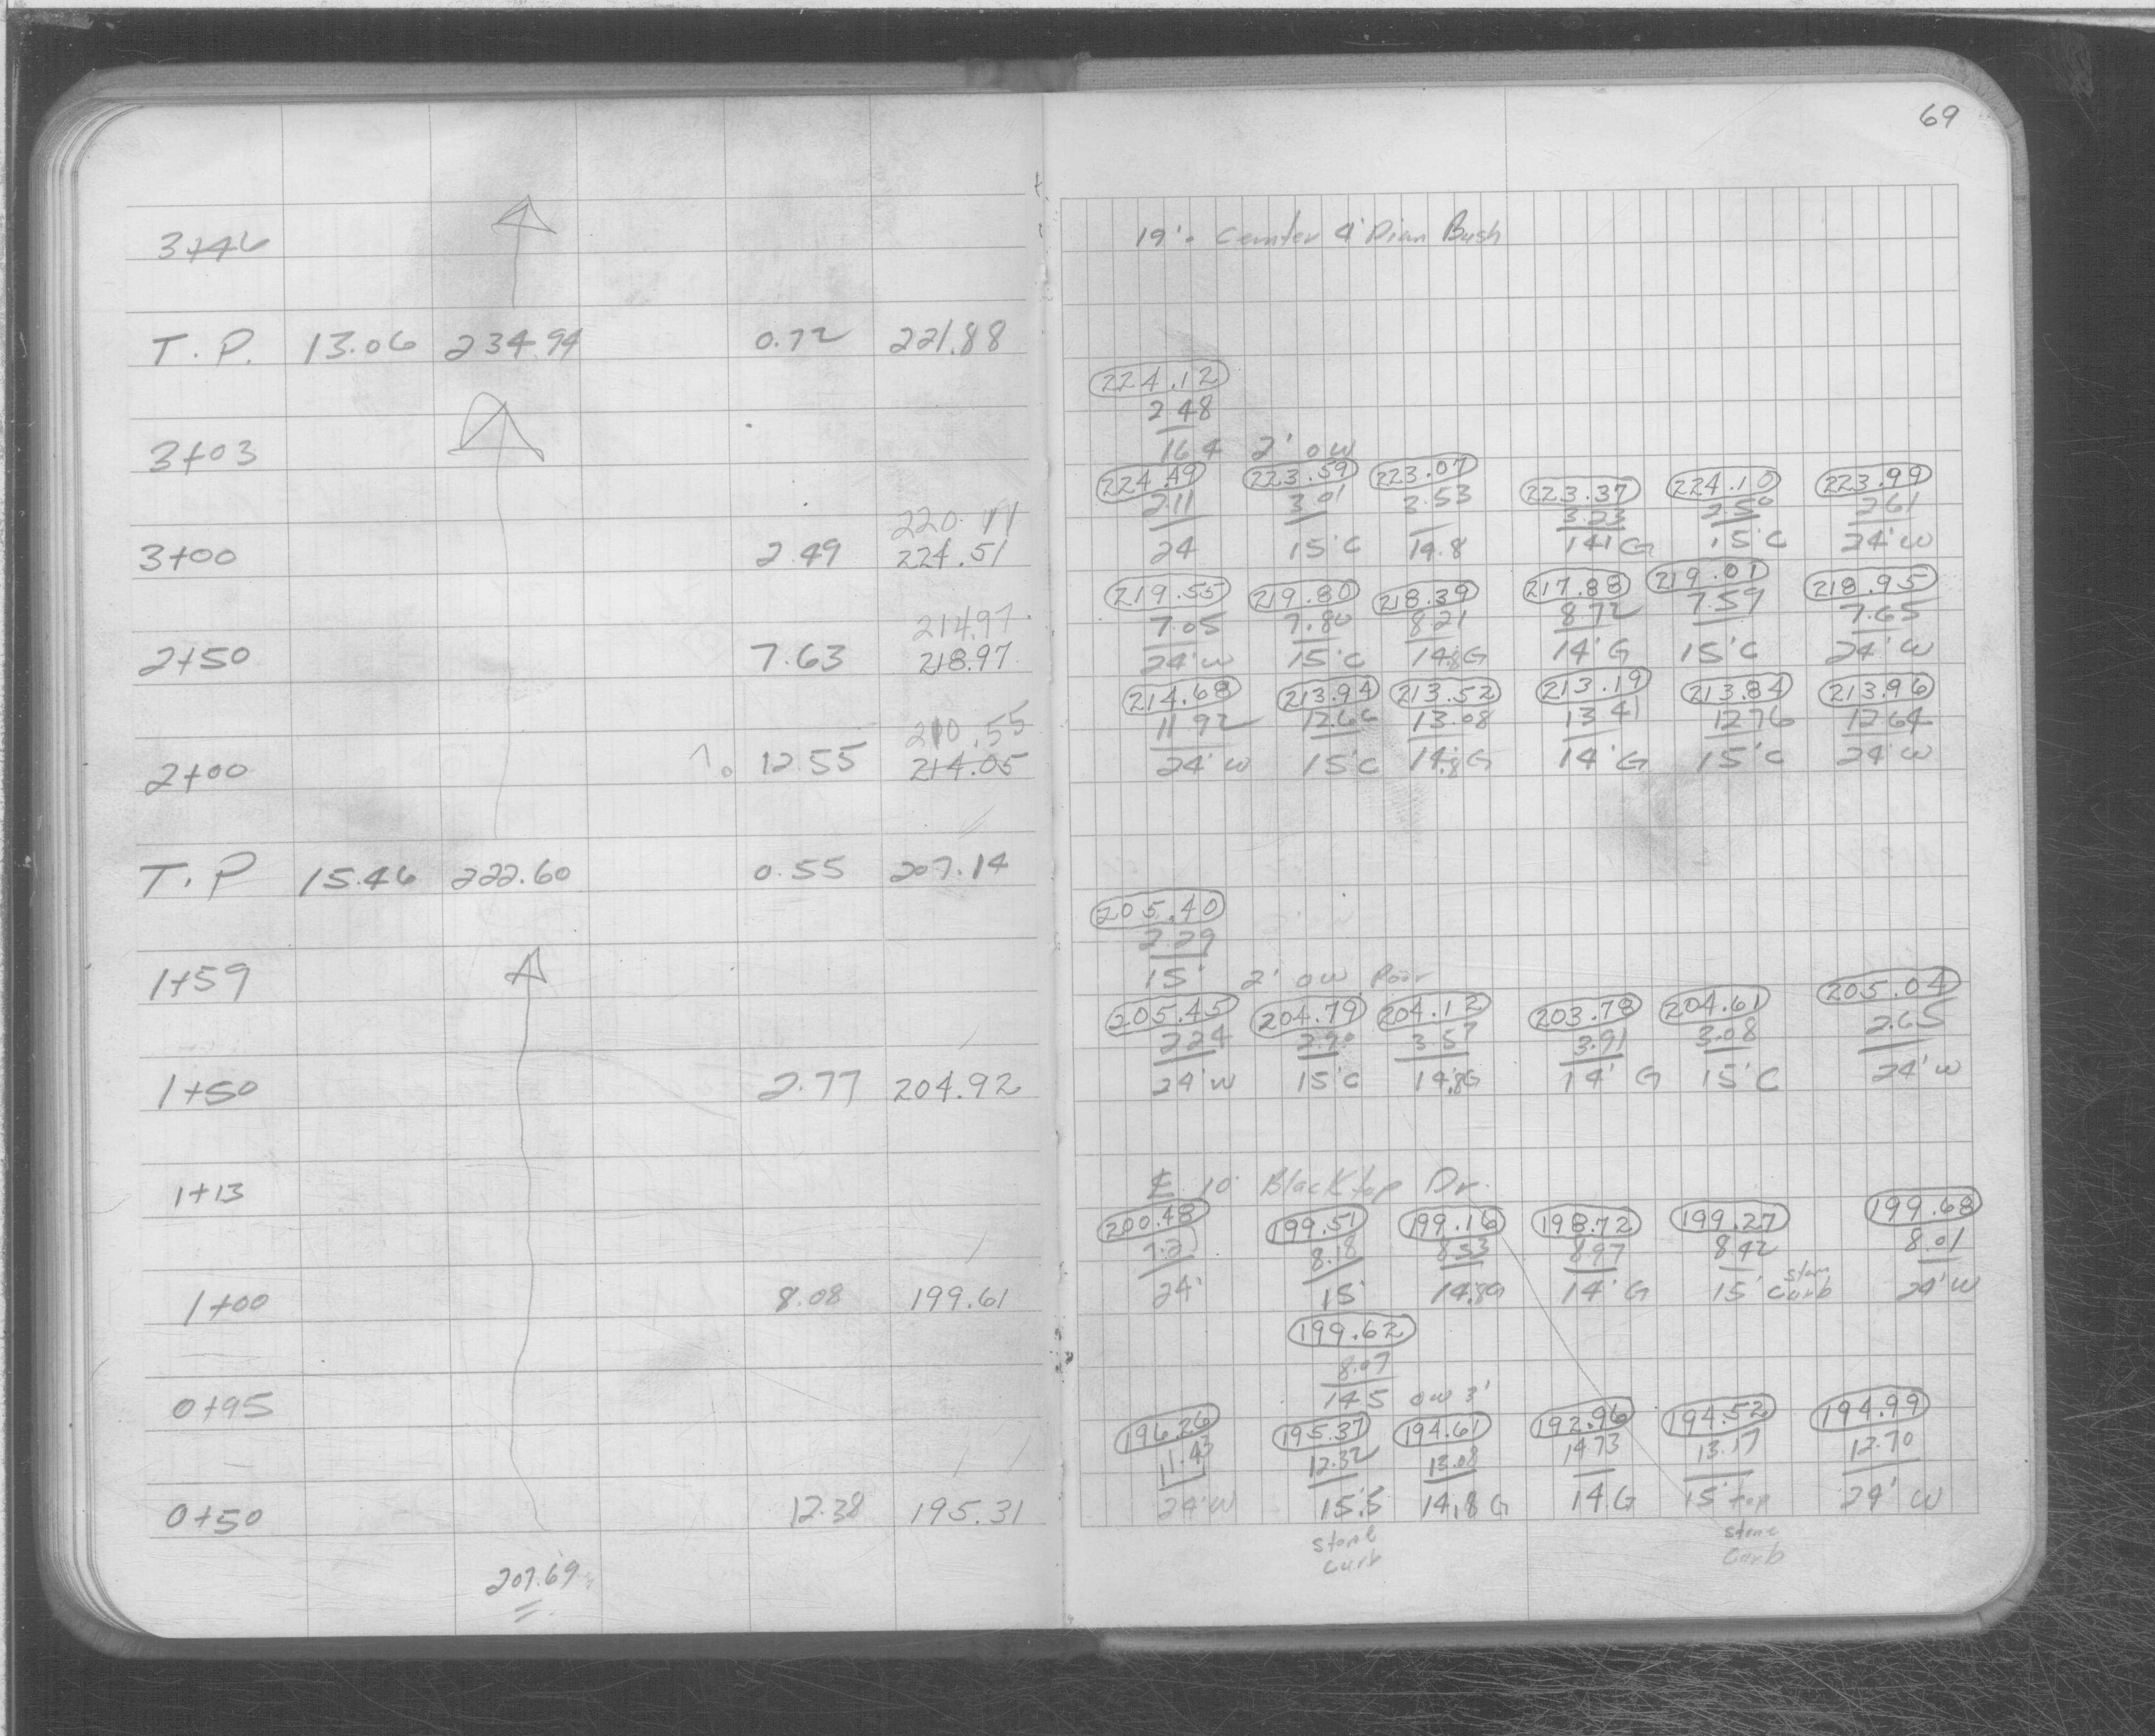 69
3+46
19' - Center 4' Diam Bush
T.P. 13.06 234.94 0.72 221.88
224.12
2.48
3+03
16.4 2' OW
224.49 223.59 223.07 223.37 224.10 223.99
220.11 2.11 3.01 3.53 3.23 2.50 2.61
3+00 2.49 224.51
24 15'C 14.8 14'G 15'C 24'W
219.55 219.80 218.39 217.88 219.01 218.95
214.97 7.05 7.80 8.21 8.72 7.59 7.65
2+50 7.63 218.97
24'W 15'C 14.8G 14'G 15'C 24'W
214.68 213.94 213.52 213.19 213.84 213.96
210.55 11.92 12.66 13.08 13.41 12.76 12.64
2+00 12.55 214.05
24'W 15'C 14.8G 14'G 15'C 24'W
T.P 15.46 222.60 0.55 207.14
205.40
2.29
1+59
15' 2' OW Poor
205.45 204.79 204.12 203.78 204.61 205.04
2.24 2.90 3.57 3.91 3.08 2.65
1+50 2.77 204.92
24'W 15'C 14.8G 14'G 15'C 24'W
1+13
℄ 10' Blacktop Dr.
200.48 199.51 199.16 198.72 199.27 199.68
7.21 8.18 8.53 8.97 8.42 8.01
1+00 8.08 199.61
24' 15' 14.8G 14'G 15' Stone Curb 24'W
199.62
8.07
0+95
14.5 OW 3'
196.26 195.37 194.61 192.96 194.52 194.99
11.43 12.32 13.08 14.73 13.17 12.70
0+50 12.38 195.31
24'W 15.5 14.8G 14G 15' top 24'W
Stone Curb
Stone Curb
207.69